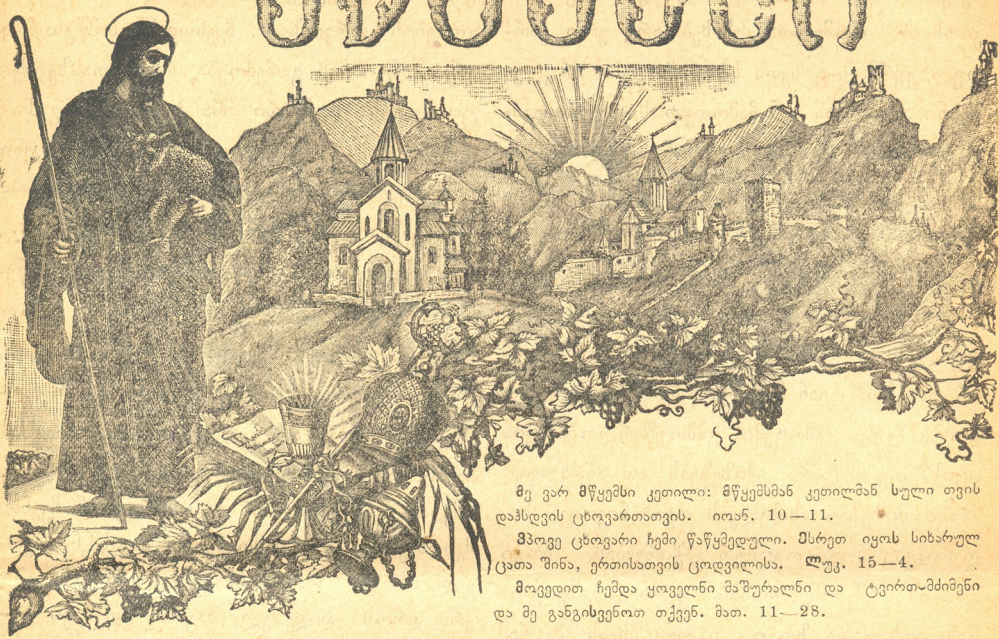 მე ვარ მწყემსი კეთილი: მწყემსმან კეთილმან სული თვის
დაჰსდვის ცხოვართათვის. იოან. 10—11.
ვჰპოვე ცხოვარი ჩემი წაწყმედული. ესრეთ იყოს სიხარულ
ცათა შინა, ერთისათვის ცოდვილისა. ლუკ. 15—4.
მოვედით ჩემდა ყოველნი მაშურალნი და ტვირთ-მძიმენი
და მე განგისვენოთ თქვენ. მათ. 11—28.